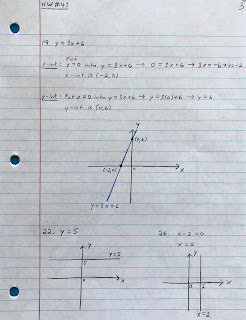 HW #41
3
19. y = 3x+6
x-int: Put y=0 into y=3x+6 → 0=3x+6 → 3x=-6 → x=-2
x-int is (-2,0)
y-int: Put x=0 into y=3x+6 → y=3(0)+6 → y=6
y-int is (0,6)
y
(0,6)
(-2,0)
x
y=3x+6
22. y=5
26. x-2=0
x=2
y
y=5
5
x
y
2
x
x=2